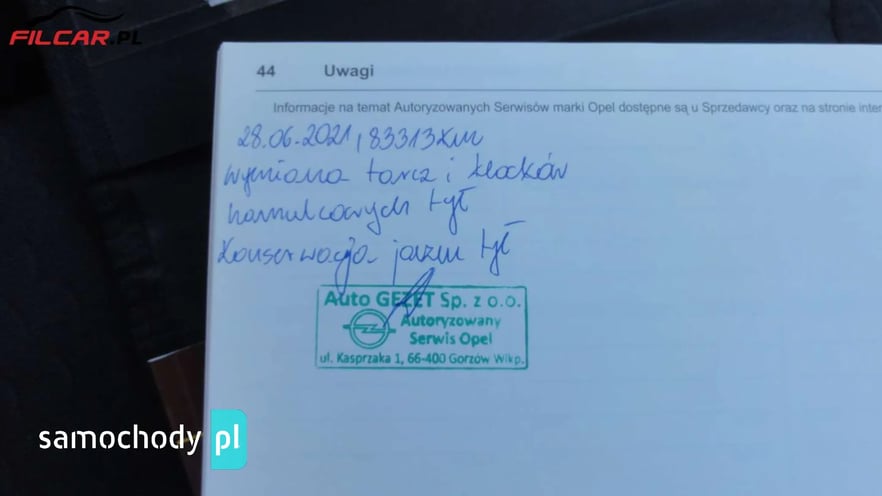 FILCAR.PL
44 Uwagi
Informacje na temat Autoryzowanych Serwisów marki Opel dostępne są u Sprzedawcy oraz na stronie inter
28.06.2021, 83313km
wymiana tarcz i klocków
hamulcowych tył
Konserwacja jarzm tył
Auto GEZET Sp. z o.o.
Autoryzowany
Serwis Opel
ul. Kasprzaka 1, 66-400 Gorzów Wlkp.
samochody pl